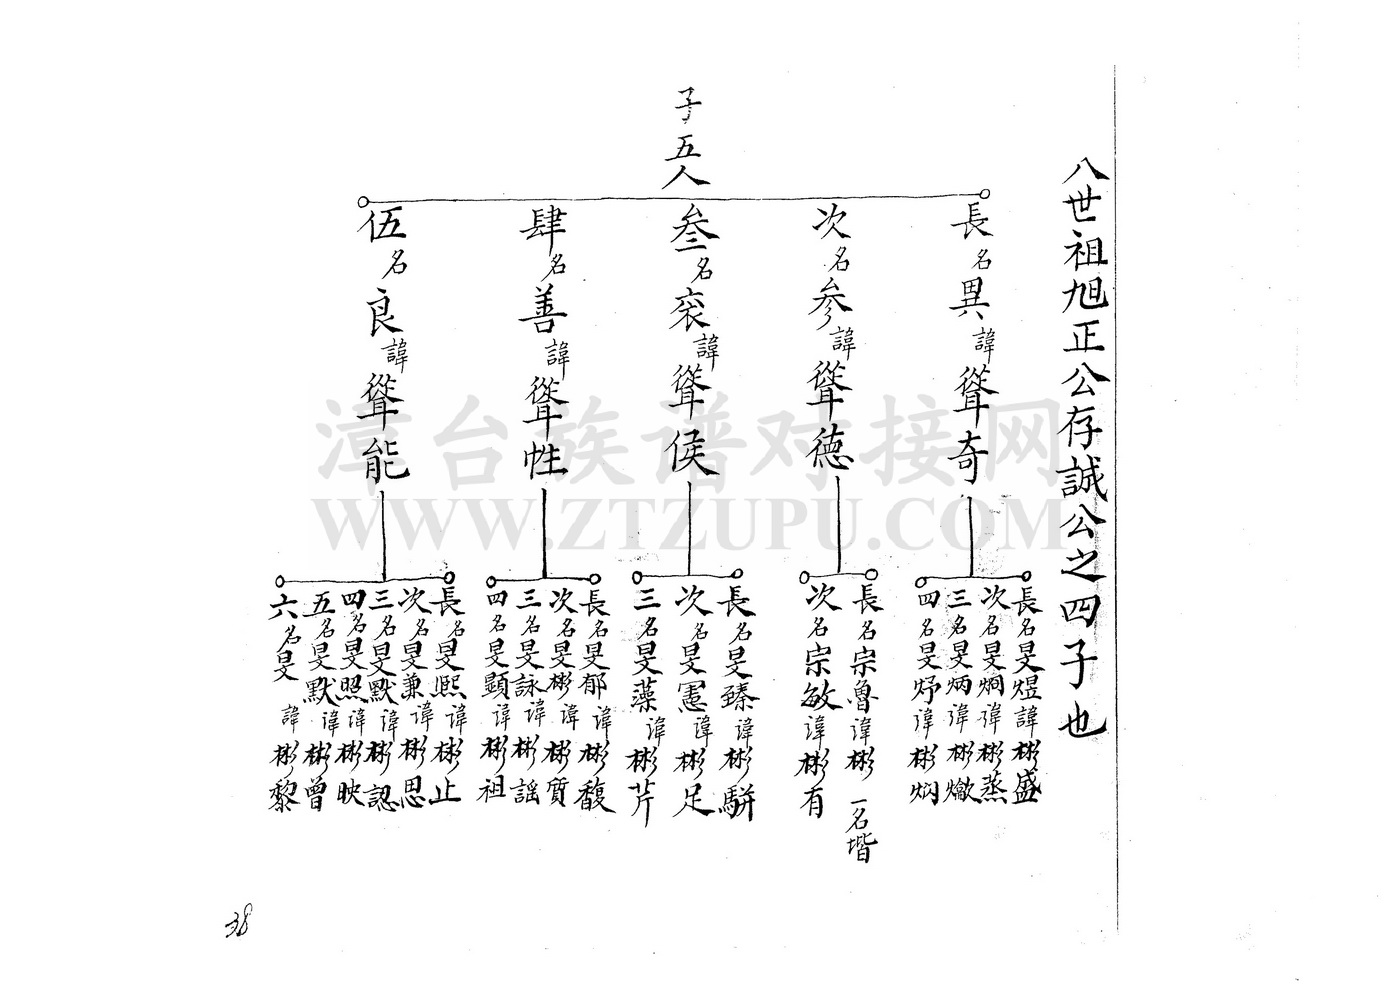 八世祖旭正公存誠公之四子也
子五人
長名異諱聳奇
次名参諱聳德
叁名衮諱聳侯
肆名善諱聳性
伍名良諱聳能
長名旻煜諱彬盛
次名旻烱諱彬蒸
三名旻炳諱彬燉
四名旻烀諱彬焖
長名宗魯諱彬 一名堦
次名宗敏諱彬有
長名旻臻諱彬駢
次名旻憲諱彬足
三名旻藻諱彬芹
長名旻郁諱彬馥
次名旻彬諱彬質
三名旻詠諱彬謡
四名旻顯諱彬祖
長名旻熙諱彬止
次名旻兼諱彬思
三名旻默諱彬認
四名旻照諱彬映
五名旻默諱彬曾
六名旻 諱彬黎
38
漳台族谱对接网
WWW.ZTZUPU.COM